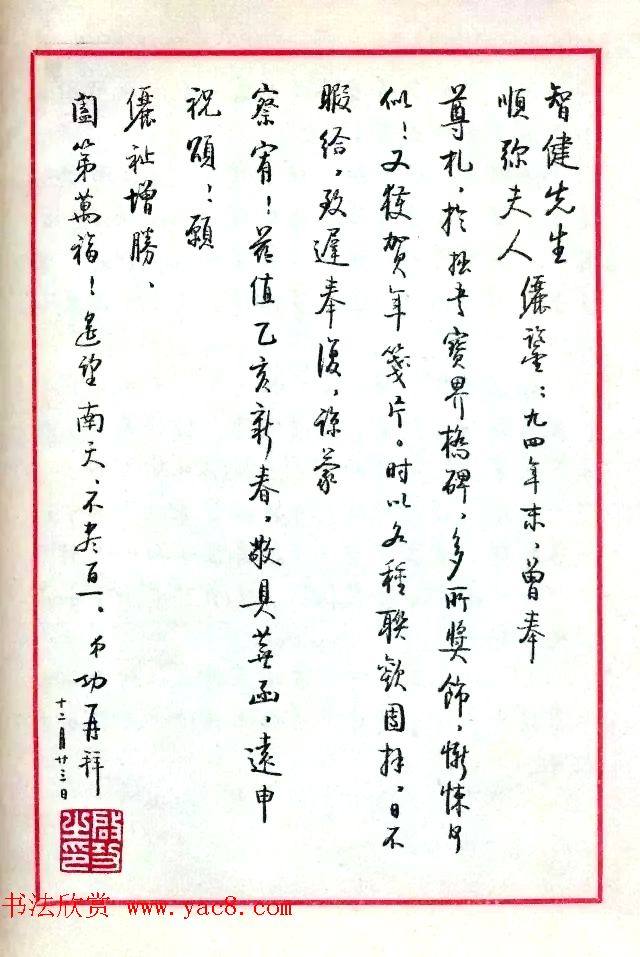 智健先生
順弥夫人 儷鑒：九四年末，曾奉
尊札，於拙書寶界橋碑，多所獎飾，慚悚何
似！又獲賀年箋片。时以各種聯歡困扰，日不
暇給，致遲奉復，諒蒙
察宥！茲值乙亥新春，敬具蕪函，遠申
祝頌！願
儷祉增勝、
闔第萬福！遙望南天，不盡百一。 弟功再拜
十二月廿三日
啟功之印
书法欣赏 www.yac8.com